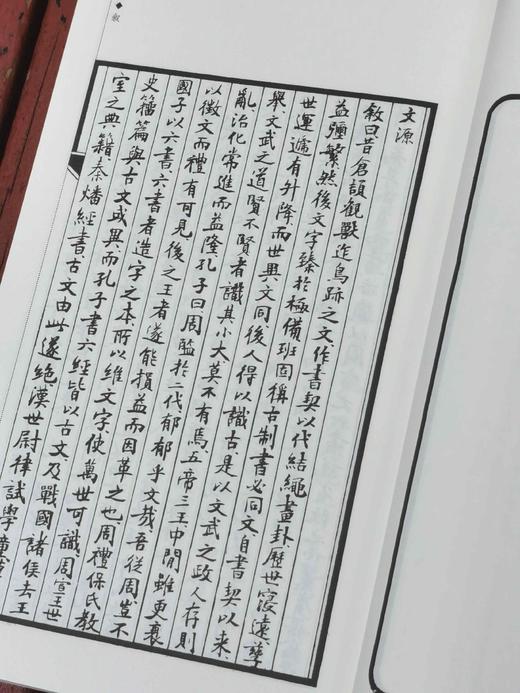 叙
文源
敘曰昔倉頡觀獸迒鳥跡之文作書契以代結繩畫卦歷世寖遠孳
益彌繁然後文字臻於極備班固稱古制書必同文自書契以來
世運遞有升降而世異文同後人得以識古是以文武之政人存則
舉文武之道賢不賢者識其小大莫不有焉五帝三王中閒雖更衰
亂治化常進而益隆孔子曰周監於二代郁郁乎文哉吾從周豈不
以徵文而禮有可見後之王者遂能損益而因革之也周禮保氏教
國子以六書六書者造字之本所以維文字使萬世可識周宣王世
史籀篇與古文或異而孔子書六經皆以古文及戰國諸侯去王
室之典籍秦燔經書古文由此遂絕漢世尉律試學童